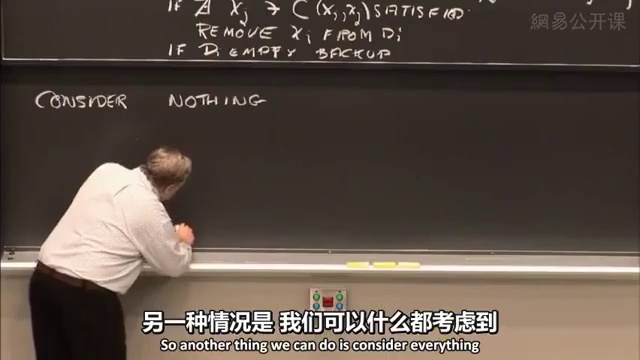 網易公开课
IF ∄ xj ∋ C(xi,xj) SATISFIED
REMOVE xi FROM Di
IF Di EMPTY BACKUP
CONSIDER NOTHING
另一种情况是 我们可以什么都考虑到
So another thing we can do is consider everything